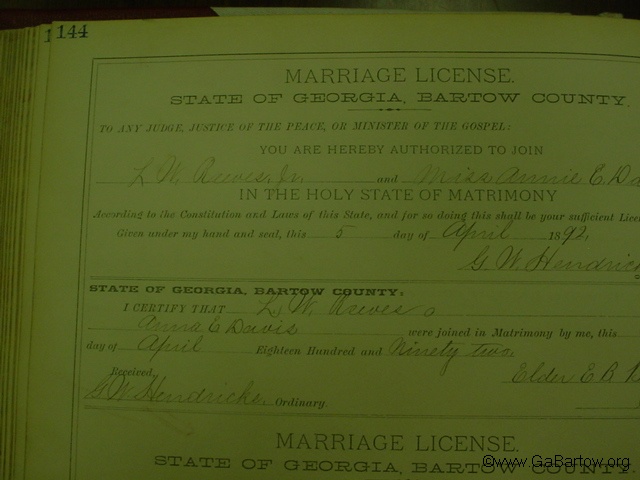 144
MARRIAGE LICENSE.
STATE OF GEORGIA, BARTOW COUNTY.
TO ANY JUDGE, JUSTICE OF THE PEACE, OR MINISTER OF THE GOSPEL:
YOU ARE HEREBY AUTHORIZED TO JOIN
L. W. Reeves, Jr. and Miss Annie E. Da
IN THE HOLY STATE OF MATRIMONY
According to the Constitution and Laws of this State, and for so doing this shall be your sufficient Lice
Given under my hand and seal, this 5 day of April 1892,
G. W. Hendrick
STATE OF GEORGIA, BARTOW COUNTY:
I CERTIFY THAT L. W. Reeves
Anna E Davis were joined in Matrimony by me, this
day of April Eighteen Hundred and Ninety two.
Received, Elder E B
G W Hendricks Ordinary.
MARRIAGE LICENSE.
STATE OF GEORGIA, BARTOW COUNTY.
©www.GaBartow.org